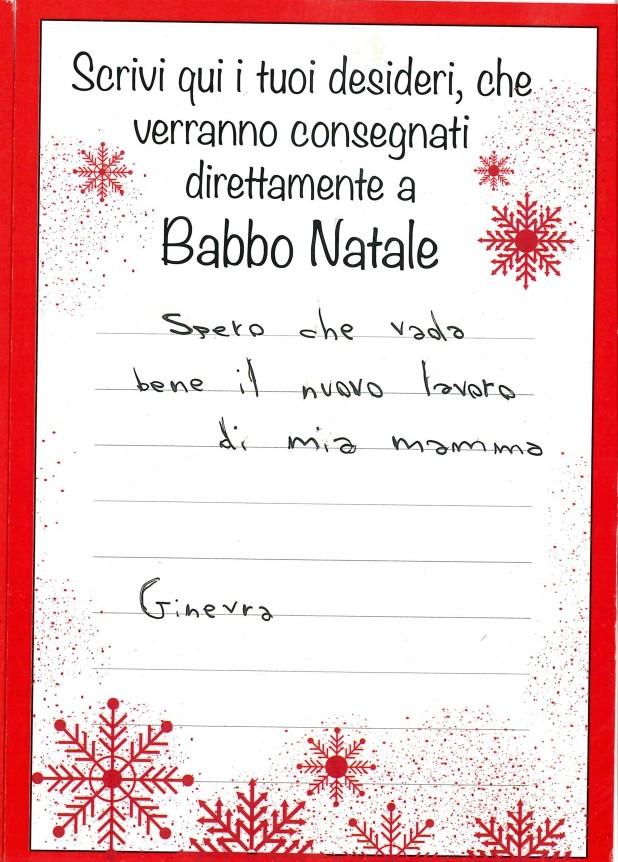 Scrivi qui i tuoi desideri, che
verranno consegnati
direttamente a
Babbo Natale
Spero che vada
bene il nuovo lavoro
di mia mamma
Ginevra